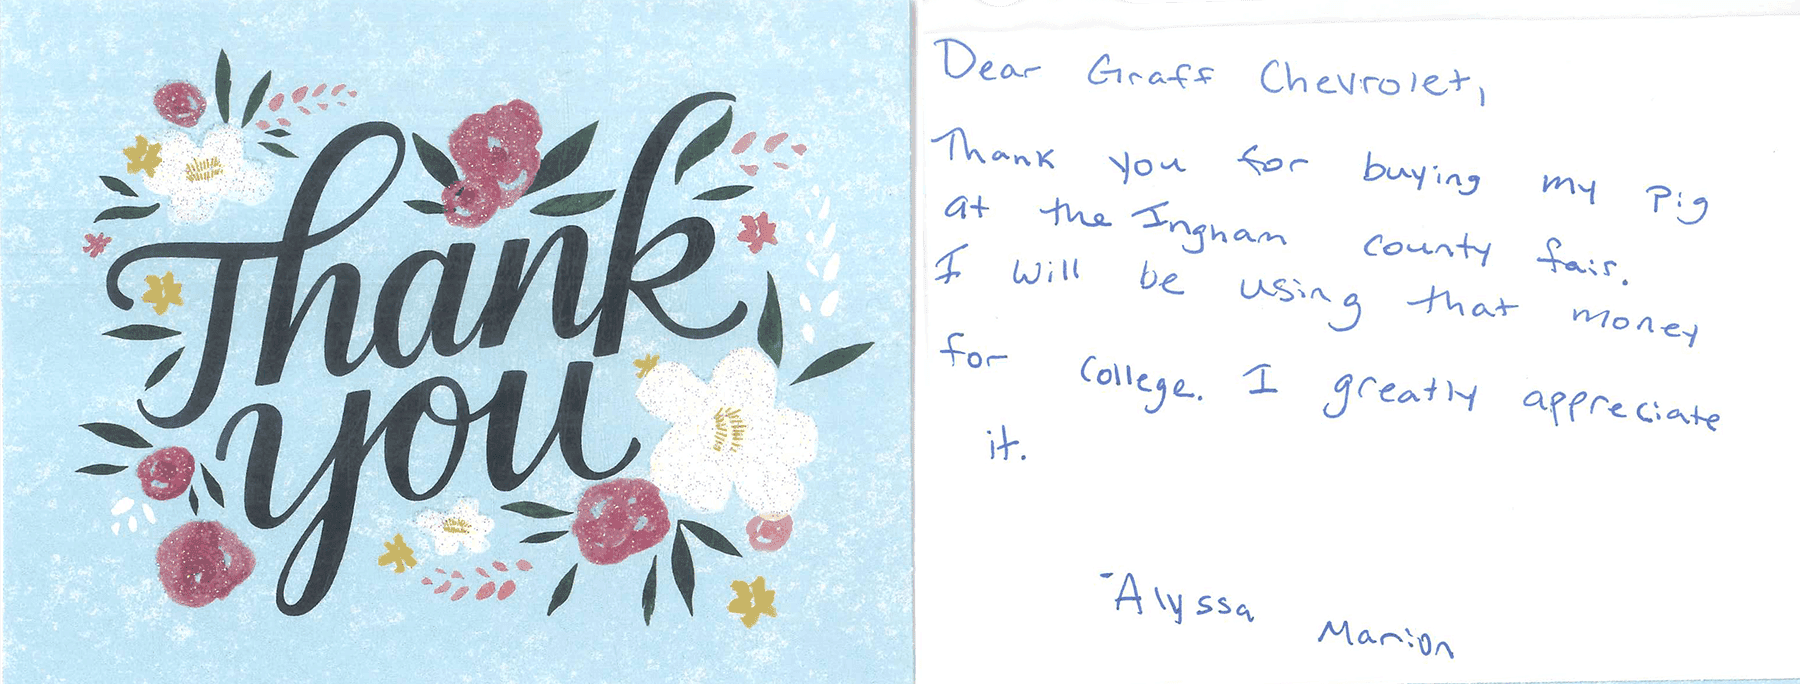 Thank
you
Dear Graff Chevrolet,
Thank you for buying my pig
at the Ingham county fair.
I will be using that money
for college. I greatly appreciate
it.
-Alyssa Marion